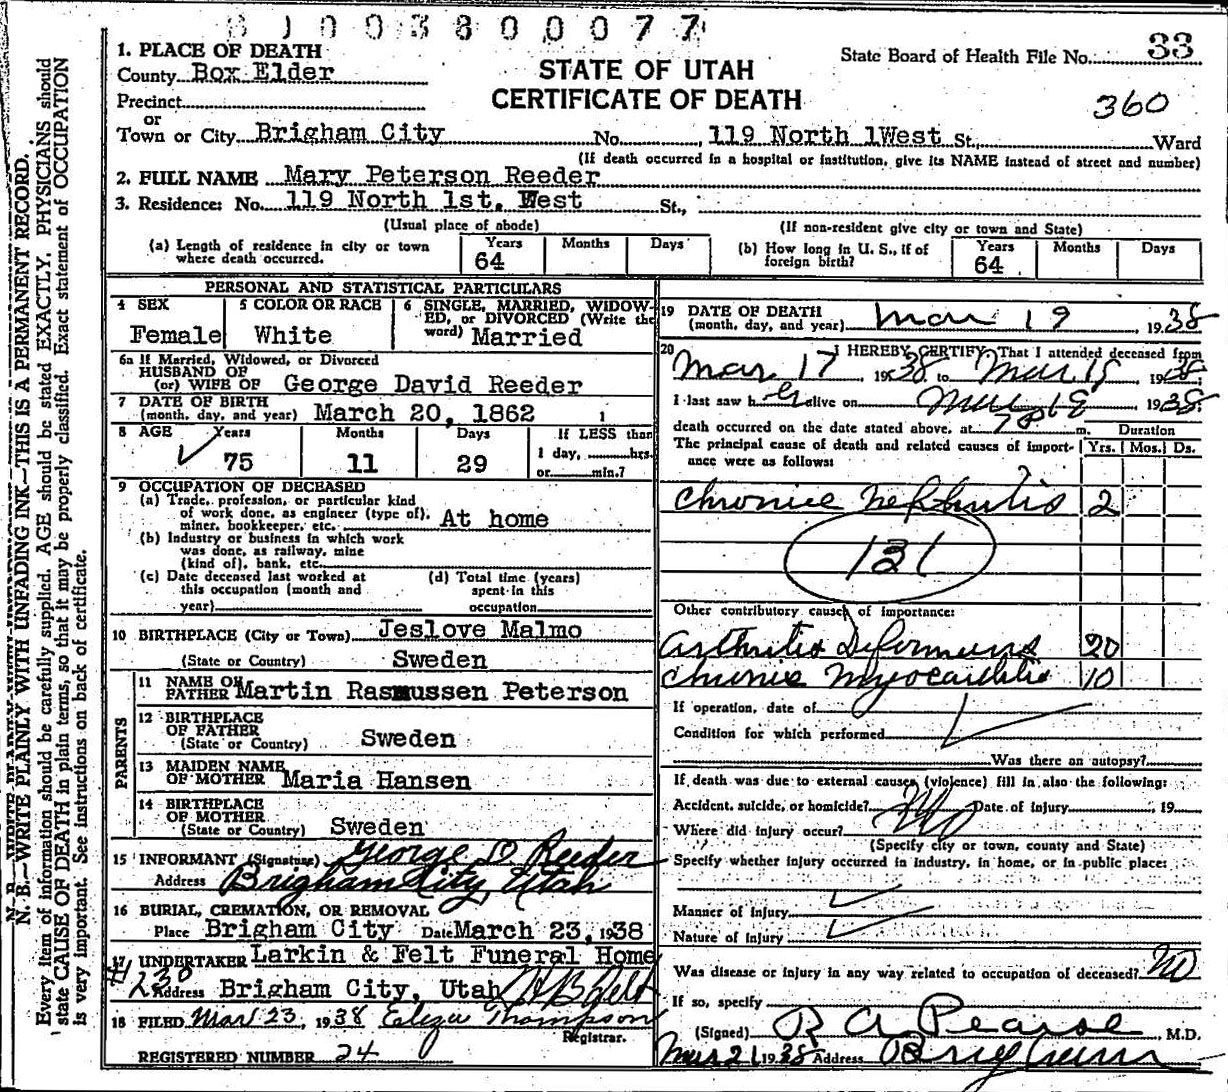 8 1 0 0 3 8 0 0 0 7 7
1. PLACE OF DEATH
County Box Elder
Precinct
or
Town or City Brigham City No. 119 North 1West St. Ward
STATE OF UTAH
CERTIFICATE OF DEATH
State Board of Health File No. 33
360
(If death occurred in a hospital or institution, give its NAME instead of street and number)
2. FULL NAME Mary Peterson Reeder
3. Residence: No. 119 North 1st. West St.,
(Usual place of abode) (If non-resident give city or town and State)
(a) Length of residence in city or town where death occurred. Years 64 Months Days
(b) How long in U. S., if of foreign birth? Years 64 Months Days
PERSONAL AND STATISTICAL PARTICULARS
4 SEX Female
5 COLOR OR RACE White
6 SINGLE, MARRIED, WIDOWED, or DIVORCED (Write the word) Married
6a If Married, Widowed, or Divorced
HUSBAND OF
(or) WIFE OF George David Reeder
7 DATE OF BIRTH
(month, day, and year) March 20, 1862
8 AGE Years 75 Months 11 Days 29 If LESS than 1 day, hrs. or min.?
9 OCCUPATION OF DECEASED
(a) Trade, profession, or particular kind
of work done, as engineer (type of),
miner, bookkeeper, etc. At home
(b) Industry or business in which work
was done, as railway, mine
(kind of), bank, etc.
(c) Date deceased last worked at this occupation (month and year)
(d) Total time (years) spent in this occupation
10 BIRTHPLACE (City or Town) Jeslove Malmo
(State or Country) Sweden
PARENTS
11 NAME OF FATHER Martin Rasmussen Peterson
12 BIRTHPLACE OF FATHER
(State or Country) Sweden
13 MAIDEN NAME OF MOTHER Maria Hansen
14 BIRTHPLACE OF MOTHER
(State or Country) Sweden
15 INFORMANT (Signature) George D Reeder
Address Brigham City, Utah
16 BURIAL, CREMATION, OR REMOVAL
Place Brigham City Date March 23, 1938
17 UNDERTAKER Larkin & Felt Funeral Home
#230
Address Brigham City, Utah
18 FILED Mar 23, 1938 Eliza Thompson
Registrar.
REGISTERED NUMBER 24
19 DATE OF DEATH
(month, day, and year) Mar 19, 1938
20 I HEREBY CERTIFY, That I attended deceased from
Mar 17 1938 to Mar 1938;
I last saw her alive on 1938
death occurred on the date stated above, at m. Duration
The principal cause of death and related causes of importance were as follows: Yrs. Mos. Ds.
Chronic Nephritis 2
131
Other contributory causes of importance:
Arthritis Deformans 20
Chronic Myocarditis 10
If operation, date of
Condition for which performed
Was there an autopsy?
If death was due to external causes (violence) fill in also the following:
Accident, suicide, or homicide? No Date of injury , 19
Where did injury occur?
(Specify city or town, county and State)
Specify whether injury occurred in industry, in home, or in public place:
Manner of injury
Nature of injury
Was disease or injury in any way related to occupation of deceased? no
If so, specify
(Signed) R A Pearse, M.D.
Mar 21 1938 Address Brigham
N. B.—WRITE PLAINLY WITH UNFADING INK—THIS IS A PERMANENT RECORD.
Every item of information should be carefully supplied. AGE should be stated EXACTLY. PHYSICIANS should
state CAUSE OF DEATH in plain terms, so that it may be properly classified. Exact statement of OCCUPATION
is very important. See instructions on back of certificate.